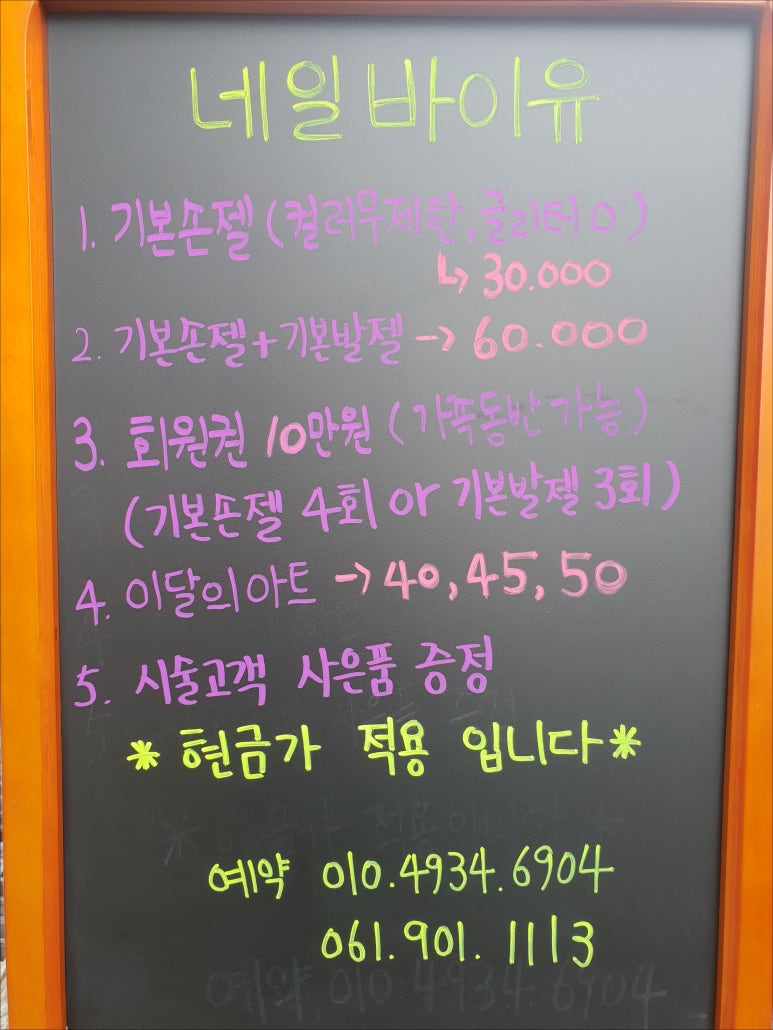 네일바이유
1. 기본손젤 (컬러무제한, 글리터 O)
↳ 30.000
2. 기본손젤+기본발젤 → 60.000
3. 회원권 10만원 (가족동반 가능)
(기본손젤 4회 or 기본발젤 3회)
4. 이달의아트 → 40, 45, 50
5. 시술고객 사은품 증정
* 현금가 적용 입니다 *
예약 010.4934.6904
061.901.1113